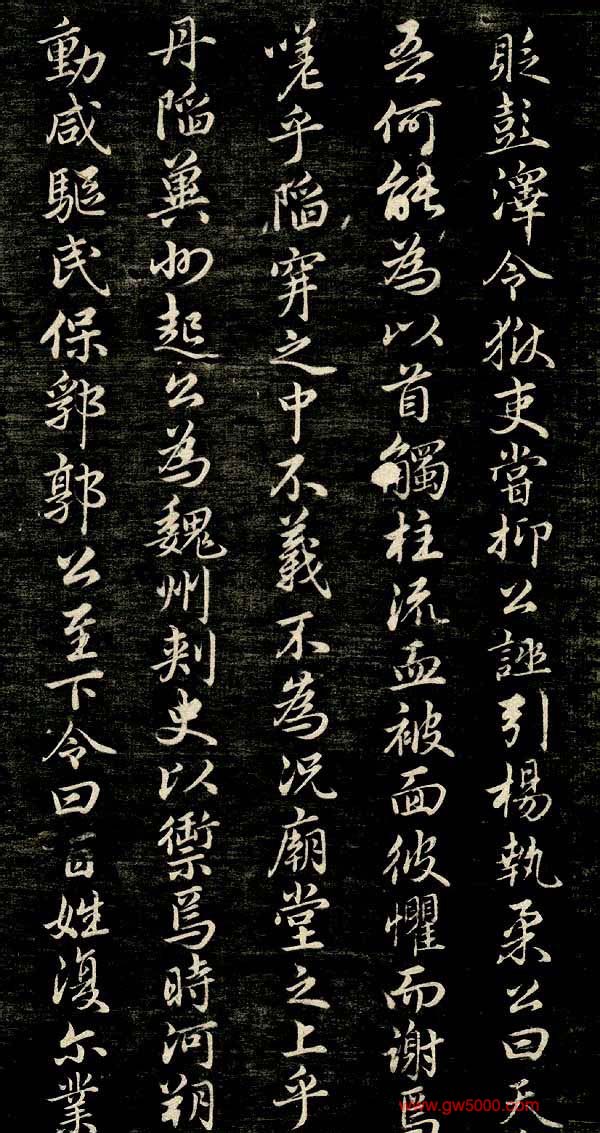 貶彭澤令獄吏嘗抑公誣引楊執柔公曰天
吾何能為以首觸柱流血被面彼懼而謝焉
嗟乎陷穽之中不義不為况廟堂之上乎
丹陷冀州起公為魏州刺史以禦焉時河朔
動咸驅民保郛郭公至下令曰百姓復尔業
www.gw5000.com